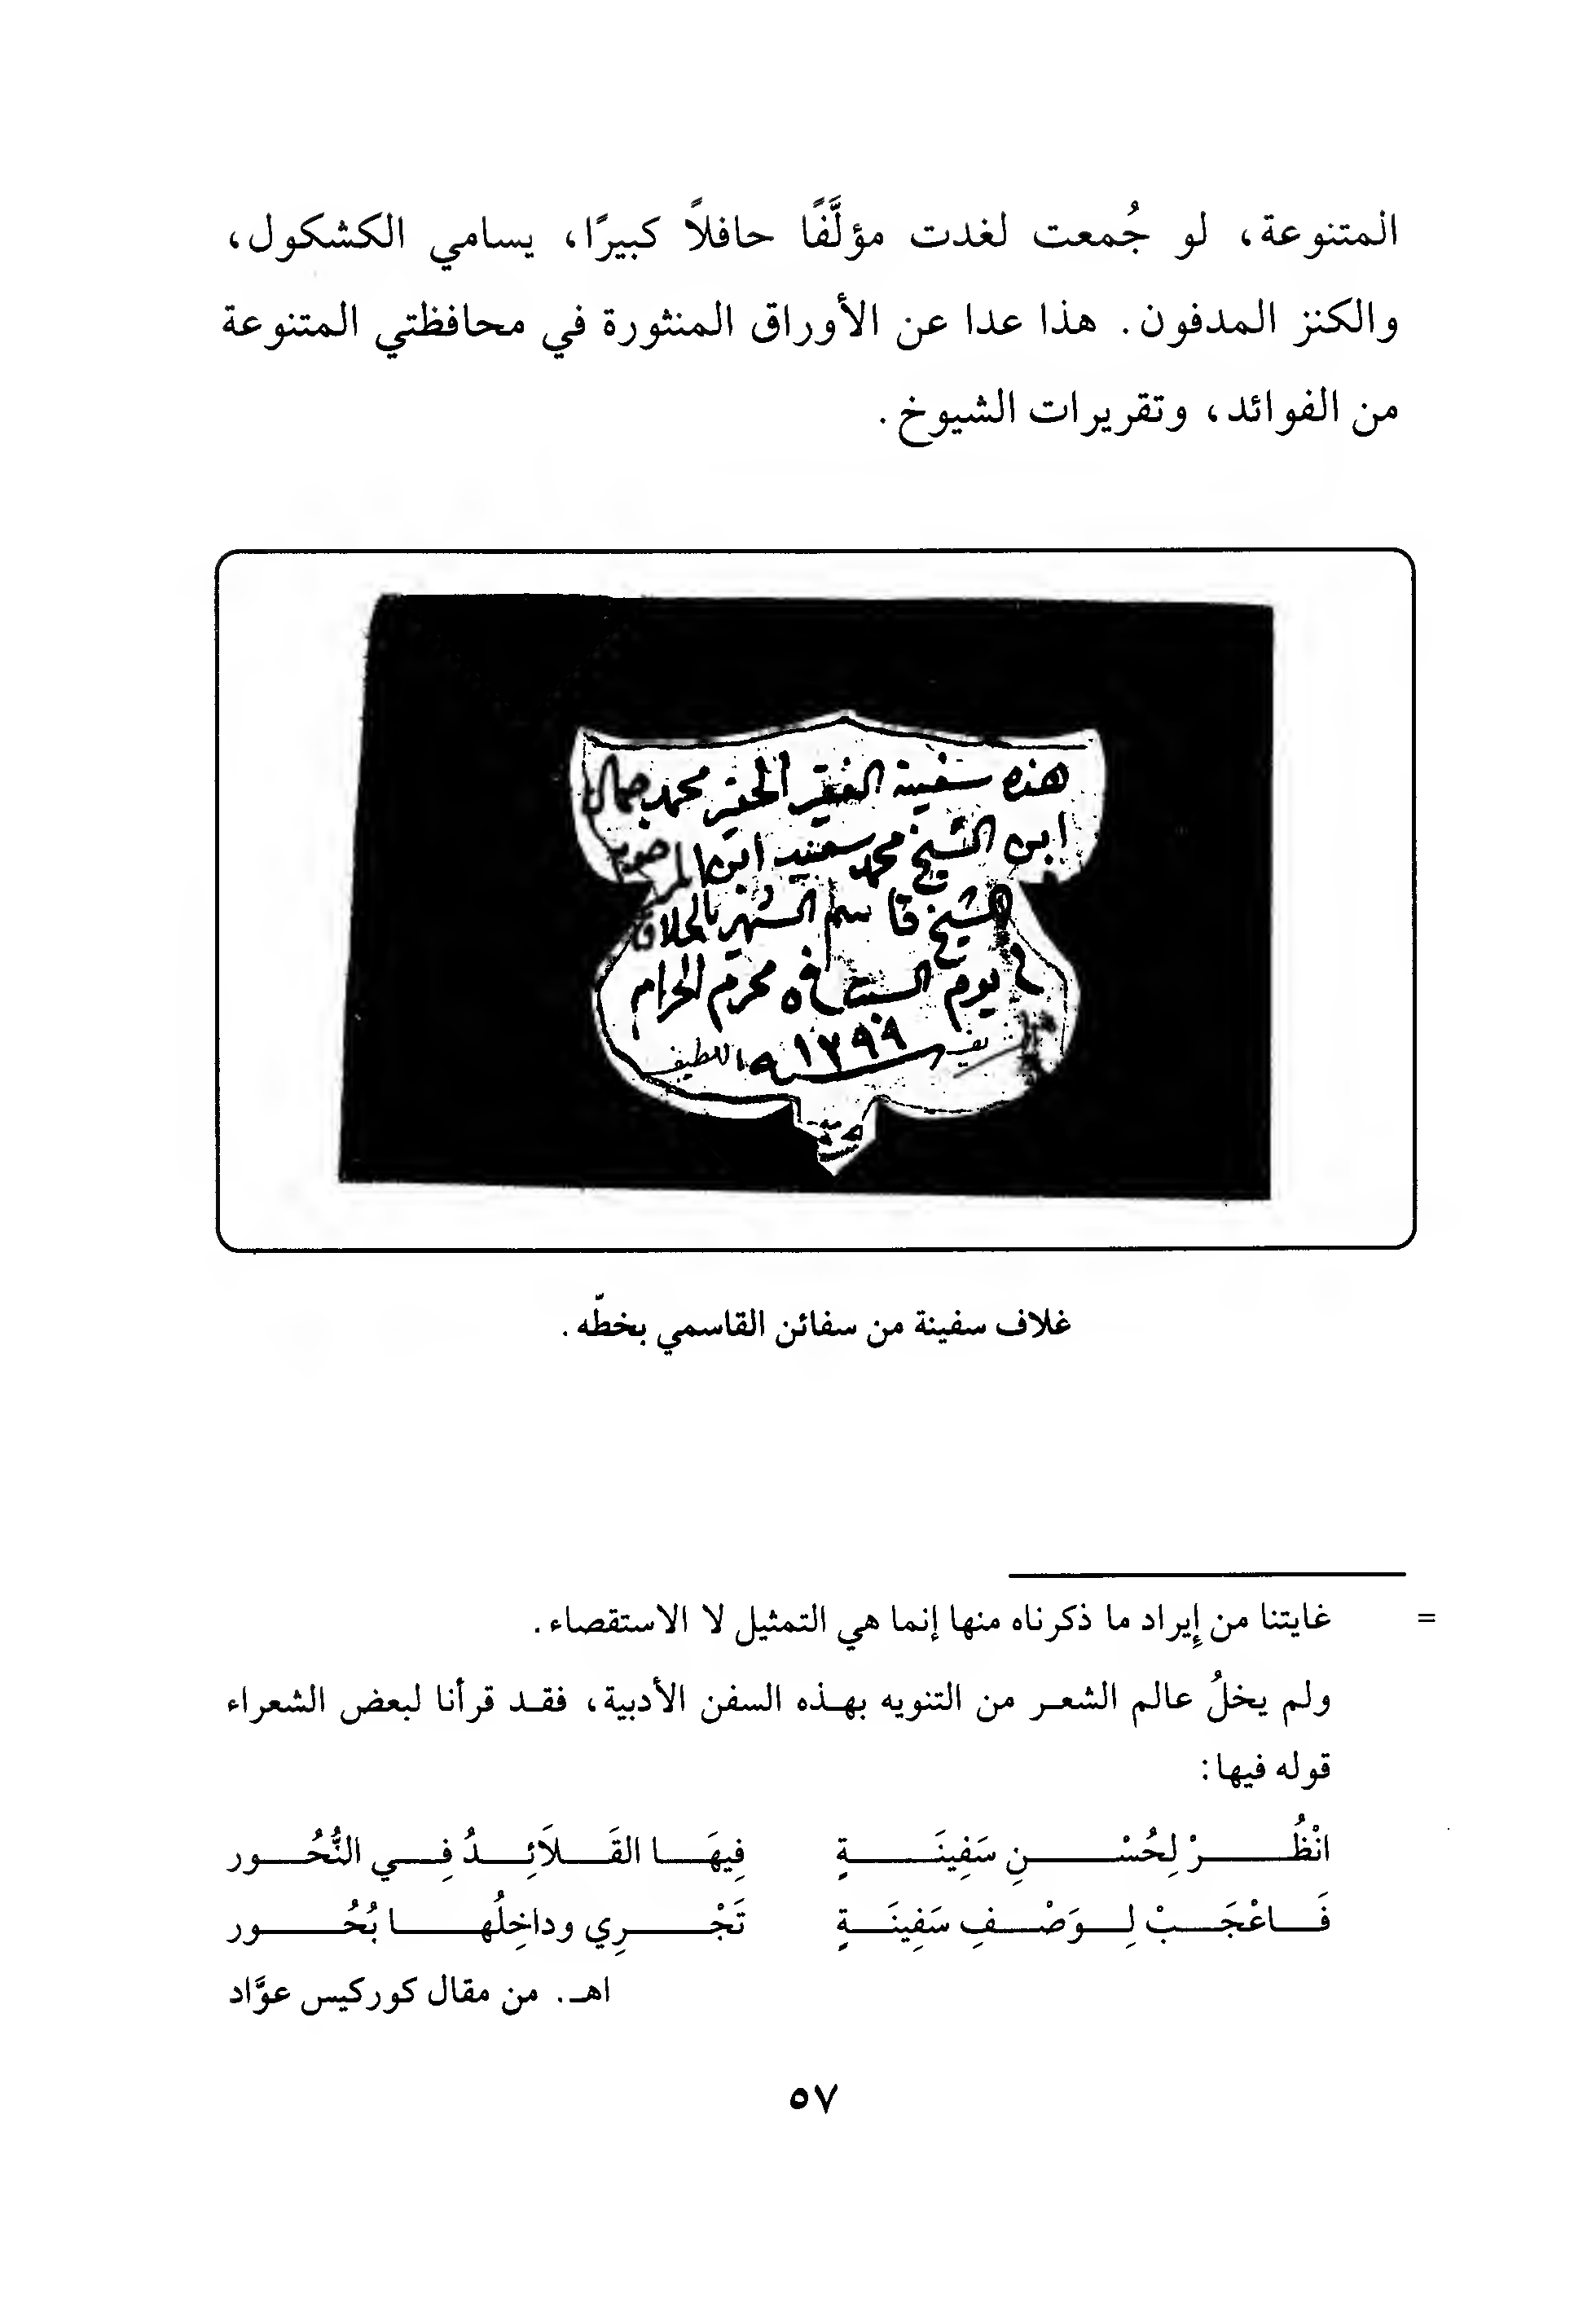 المتنوعة، لو جُمعت لغدت مؤلَّفًا حافلاً كبيرًا، يسامي الكشكول،
والكنز المدفون. هذا عدا عن الأوراق المنثورة في محافظتي المتنوعة
من الفوائد، وتقريرات الشيوخ.
هذه سفينة الفقير الحقير محمد جمال
ابن الشيخ محمد سعيد ابن المرحوم
الشيخ قاسم الشهير بالحلاق
يوم السبت في ٥ محرم الحرام
سنة ١٢٩٩
اللطيف
غلاف سفينة من سفائن القاسمي بخطّه.
= غايتنا من إيراد ما ذكرناه منها إنما هي التمثيل لا الاستقصاء.
ولم يخلُ عالم الشعر من التنويه بهذه السفن الأدبية، فقد قرأنا لبعض الشعراء
قوله فيها:
انْظُرْ لِحُسْنِ سَفِينَةٍ فِيهَا القَلاَئِدُ فِي النُّحُور
فَاعْجَبْ لِوَصْفِ سَفِينَةٍ تَجْرِي وداخِلُها بُحُور
اهـ. من مقال كوركيس عوَّاد
٥٧